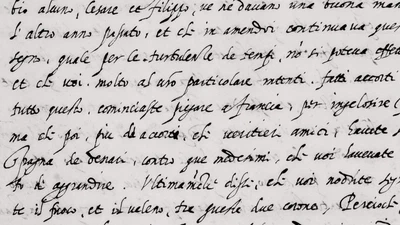 bio alcuno, Cesare et filippo, ve ne davano una buona man
l'altro anno passato, et ch'in amendoi continuava que
segno, quale per le turbulenze de tempi, no si poteva effe
et che voi molto al vro particolare intenti. fatti accorti
tutto questo, cominciaste pigare a francia, per
ma che poi, piu de accorti, ch veritieri amici, haveste
de denari, contro que medesimi, che voi havevate
di aggrandire. Ultimamete disse, ch voi nodrite
te il fuoco, et il valeno, tra queste due corone,